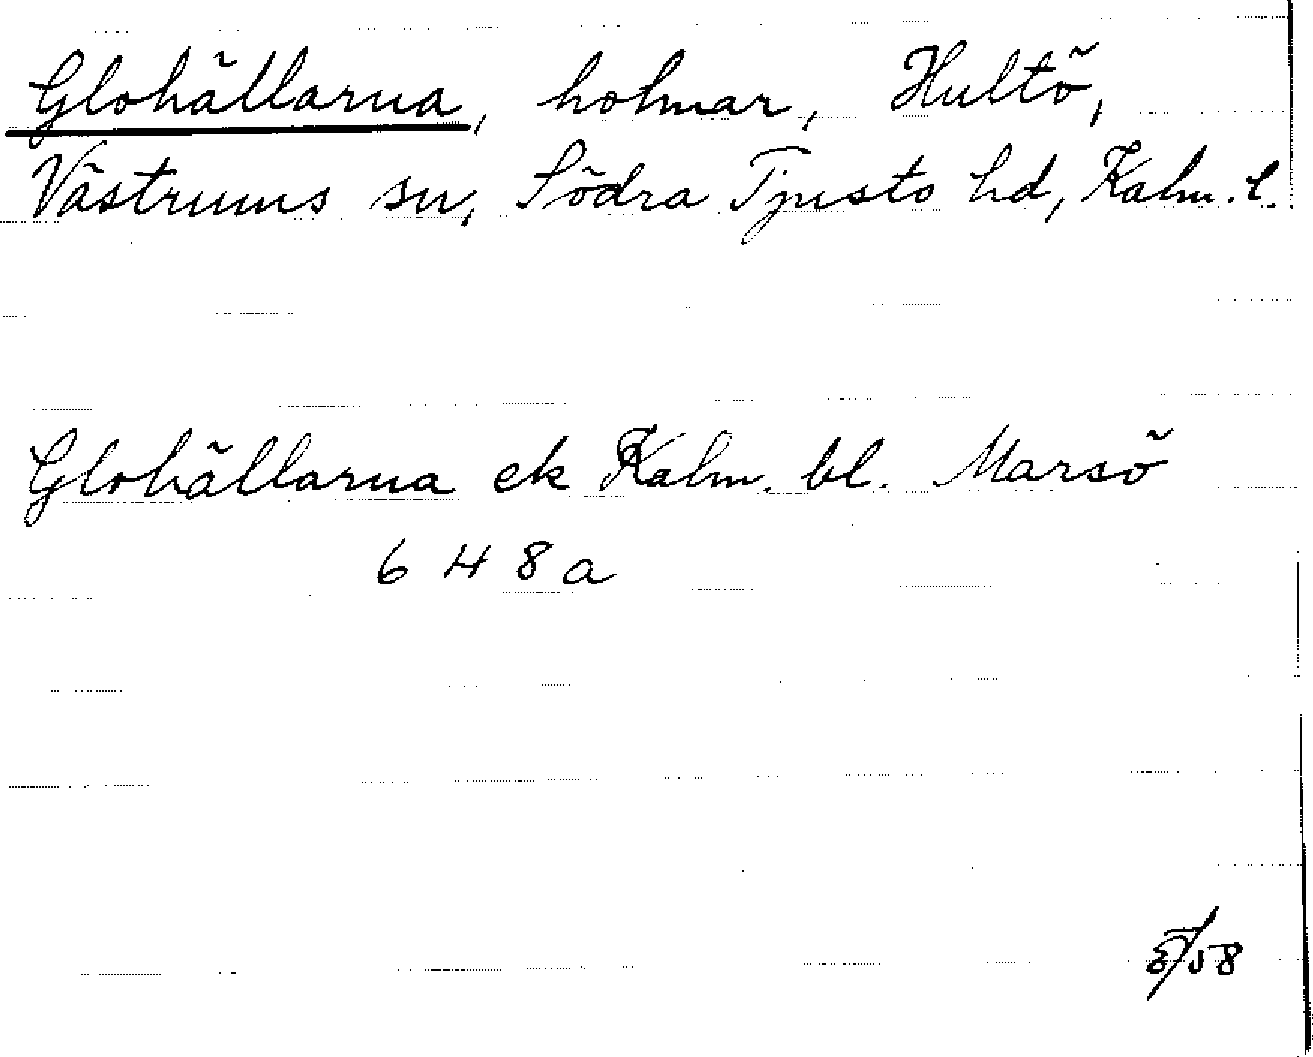 Glohällarna, holmar, Hultö,
Västrums sn, Södra Tjusts hd, Kalm. l.
Glohällarna ek Kalm. bl. Marsö
6 4 8 a